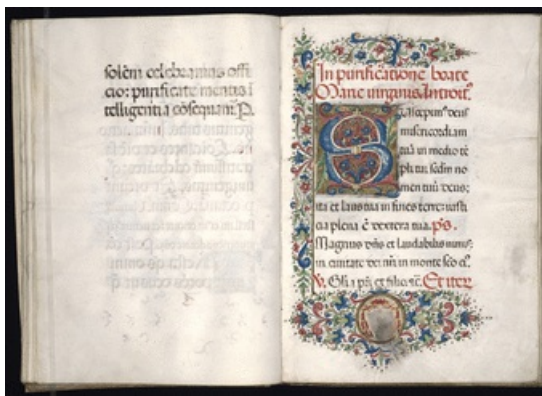 solēm celebramus offi
cio: purificate mentis ī
telligentia cōsequam̄. P.
In purificatione beate
Marie virginis. Introit⁹.
Suscepim⁹ deus
misericordiam
tuā in medio tē
pli tui: sedm no
men tuū deus:
ita et laus tua in fines terre iusti
cia plena ē dextera tua. p̄s.
Magnus dn̄s et laudabilis nimis:
in ciuitate dei nr̄i in monte sc̄o ei⁹.
V. Gl̄ia pr̄i et filio. ꝛc̄. Et iter